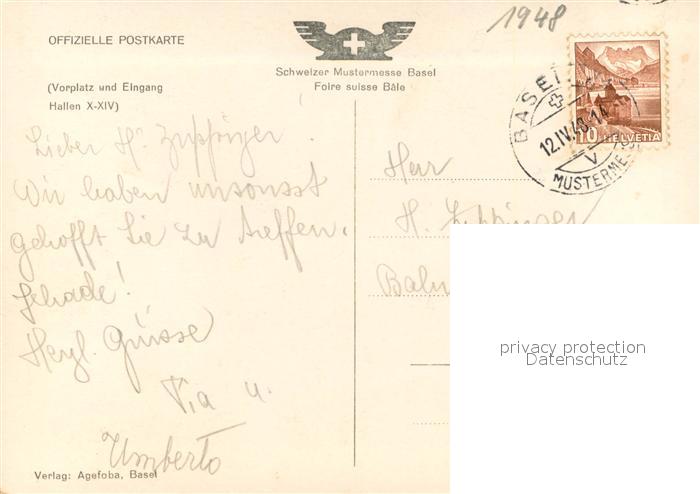 1948
OFFIZIELLE POSTKARTE
Schweizer Mustermesse Basel
Foire suisse Bâle
(Vorplatz und Eingang
Hallen X-XIV)
BASEL
12.IV.48-14
V
MUSTERME
10 HELVETIA
Lieber Hr Zuppinger!
Wir haben unsonsst
gehofft Sie zu treffen.
Schade!
Herzl. Grüsse
Pia u.
Umberto
Herr
H. Zuppinger
Bahn
privacy protection
Datenschutz
Verlag: Agefoba, Basel